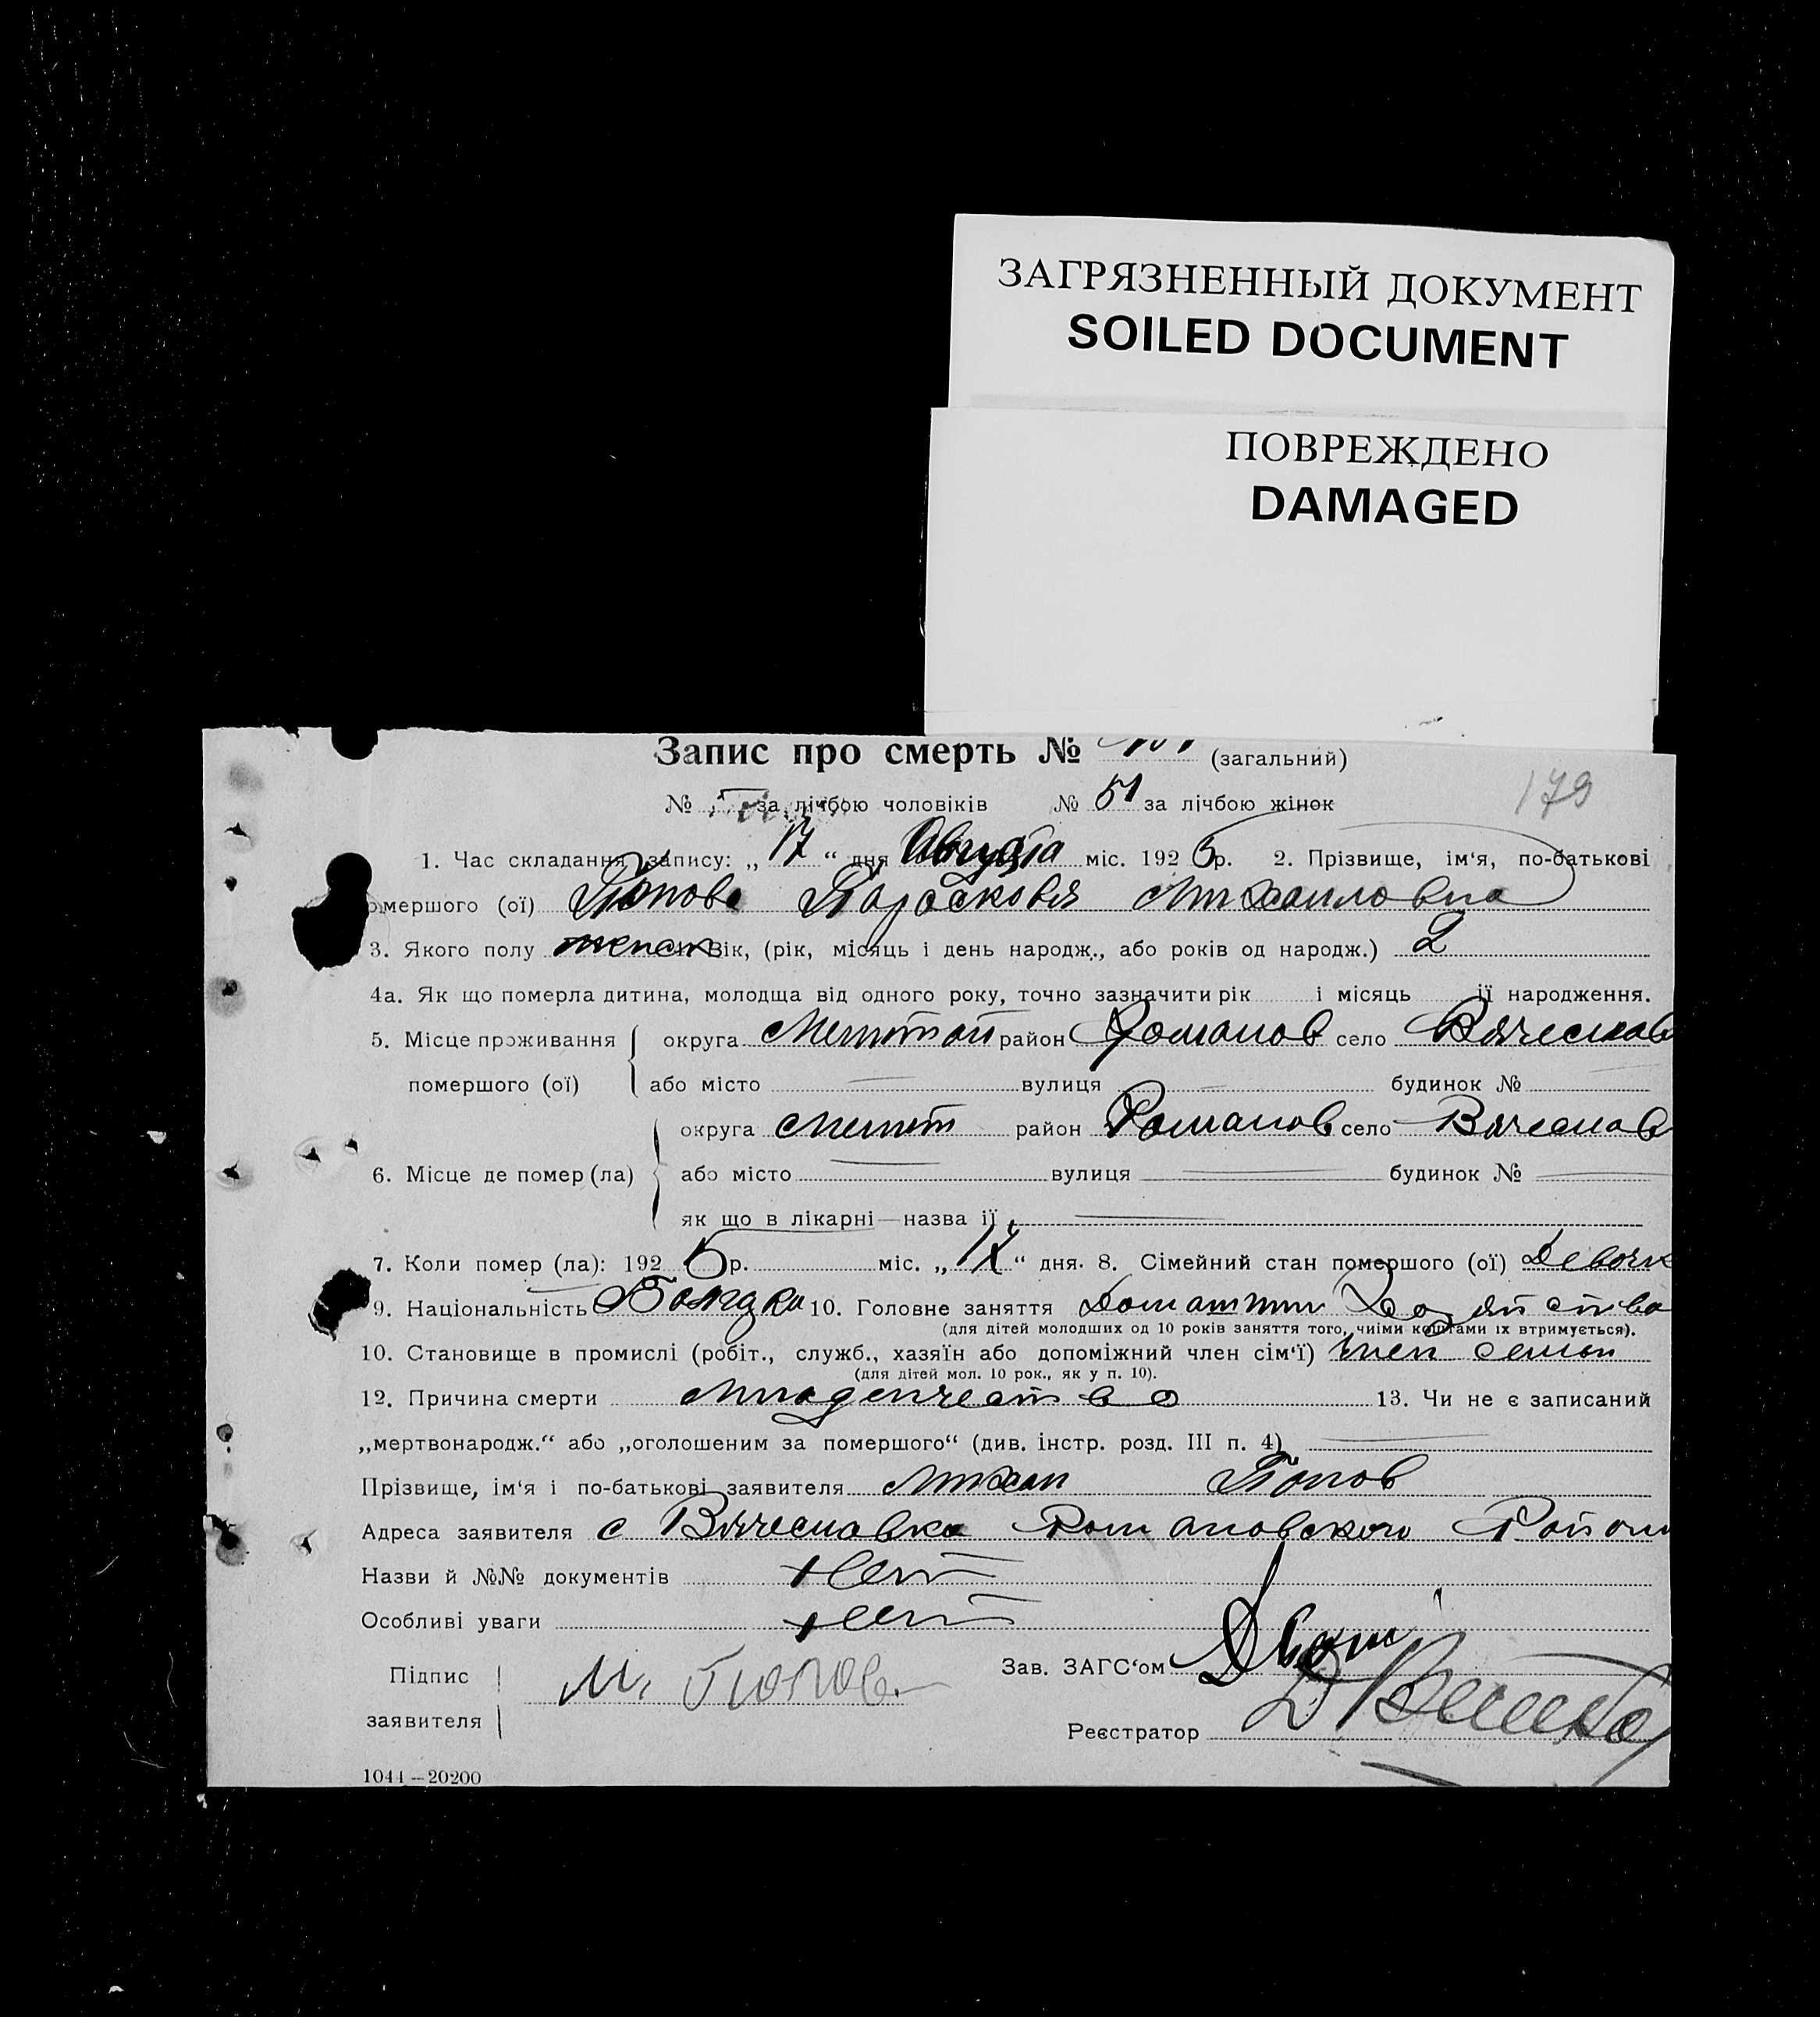 ЗАГРЯЗНЕННЫЙ ДОКУМЕНТ
SOILED DOCUMENT
ПОВРЕЖДЕНО
DAMAGED
Запис про смерть № (загальний)
179
№ за лічбою чоловіків № 51 за лічбою жінок
1. Час складання запису: „ 17 “ дня Августа міс. 192 5 р. 2. Прізвище, ім‘я, по-батькові
омершого (ої) Попова Парасковия Михаиловна
3. Якого полу женск Вік, (рік, місяць і день народж., або років од народж.) 2
4а. Як що померла дитина, молодща від одного року, точно зазначити рік і місяць її народження.
5. Місце проживання округа Мелитоп район Романов село Вячеслав
помершого (ої) або місто вулиця будинок №
округа Мелит район Романов село Вячеслав
6. Місце де помер (ла) або місто вулиця будинок №
як що в лікарні—назва ії
7. Коли помер (ла): 192 5 р. міс. „ 17 “ дня. 8. Сімейний стан помершого (ої) Девочк
9. Національність 10. Головне заняття Домашнии Хозяйство
(для дітей молодших од 10 років заняття того, чиіми коштами іх втримується).
10. Становище в промислі (робіт., служб., хазяїн або допоміжний член сім‘ї) член семьи
(для дітей мол. 10 рок., як у п. 10).
12. Причина смерти Младенчество 13. Чи не є записаний
„мертвонародж.“ або „оголошеним за помершого“ (див. інстр. розд. III п. 4)
Прізвище, ім‘я і по-батькові заявителя Михаил Попов
Адреса заявителя с Вячеславка Романовского Района
Назви й №№ документів нет
Особливі уваги нет
Підпис М. Попов. Зав. ЗАГС‘ом
заявителя Реєстратор
1044—20200